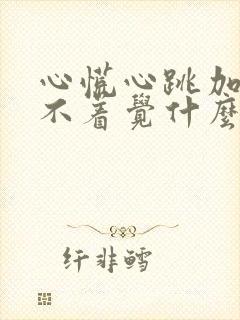 心慌心跳加
不着覺什麼
纤非鳕